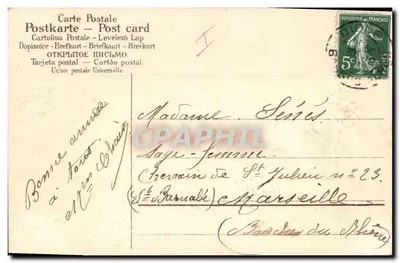 Carte Postale
Postkarte — Post card
Cartolina Postale — Levelező Lap
Dopisnice — Brefkort — Briefkaart — Brevkort
ОТКРЫТОЕ ПИСЬМО.
Tarjeta postal — Cartão postal
Union postale Universelle
I
RÉPUBLIQUE FRANÇAISE
5c
Madame Sénès
Sage-femme
(chemin de St Julien n° 23
(St Barnabé) Marseille
(Bouches du Rhône)
Bonne année
à
CPARAMA